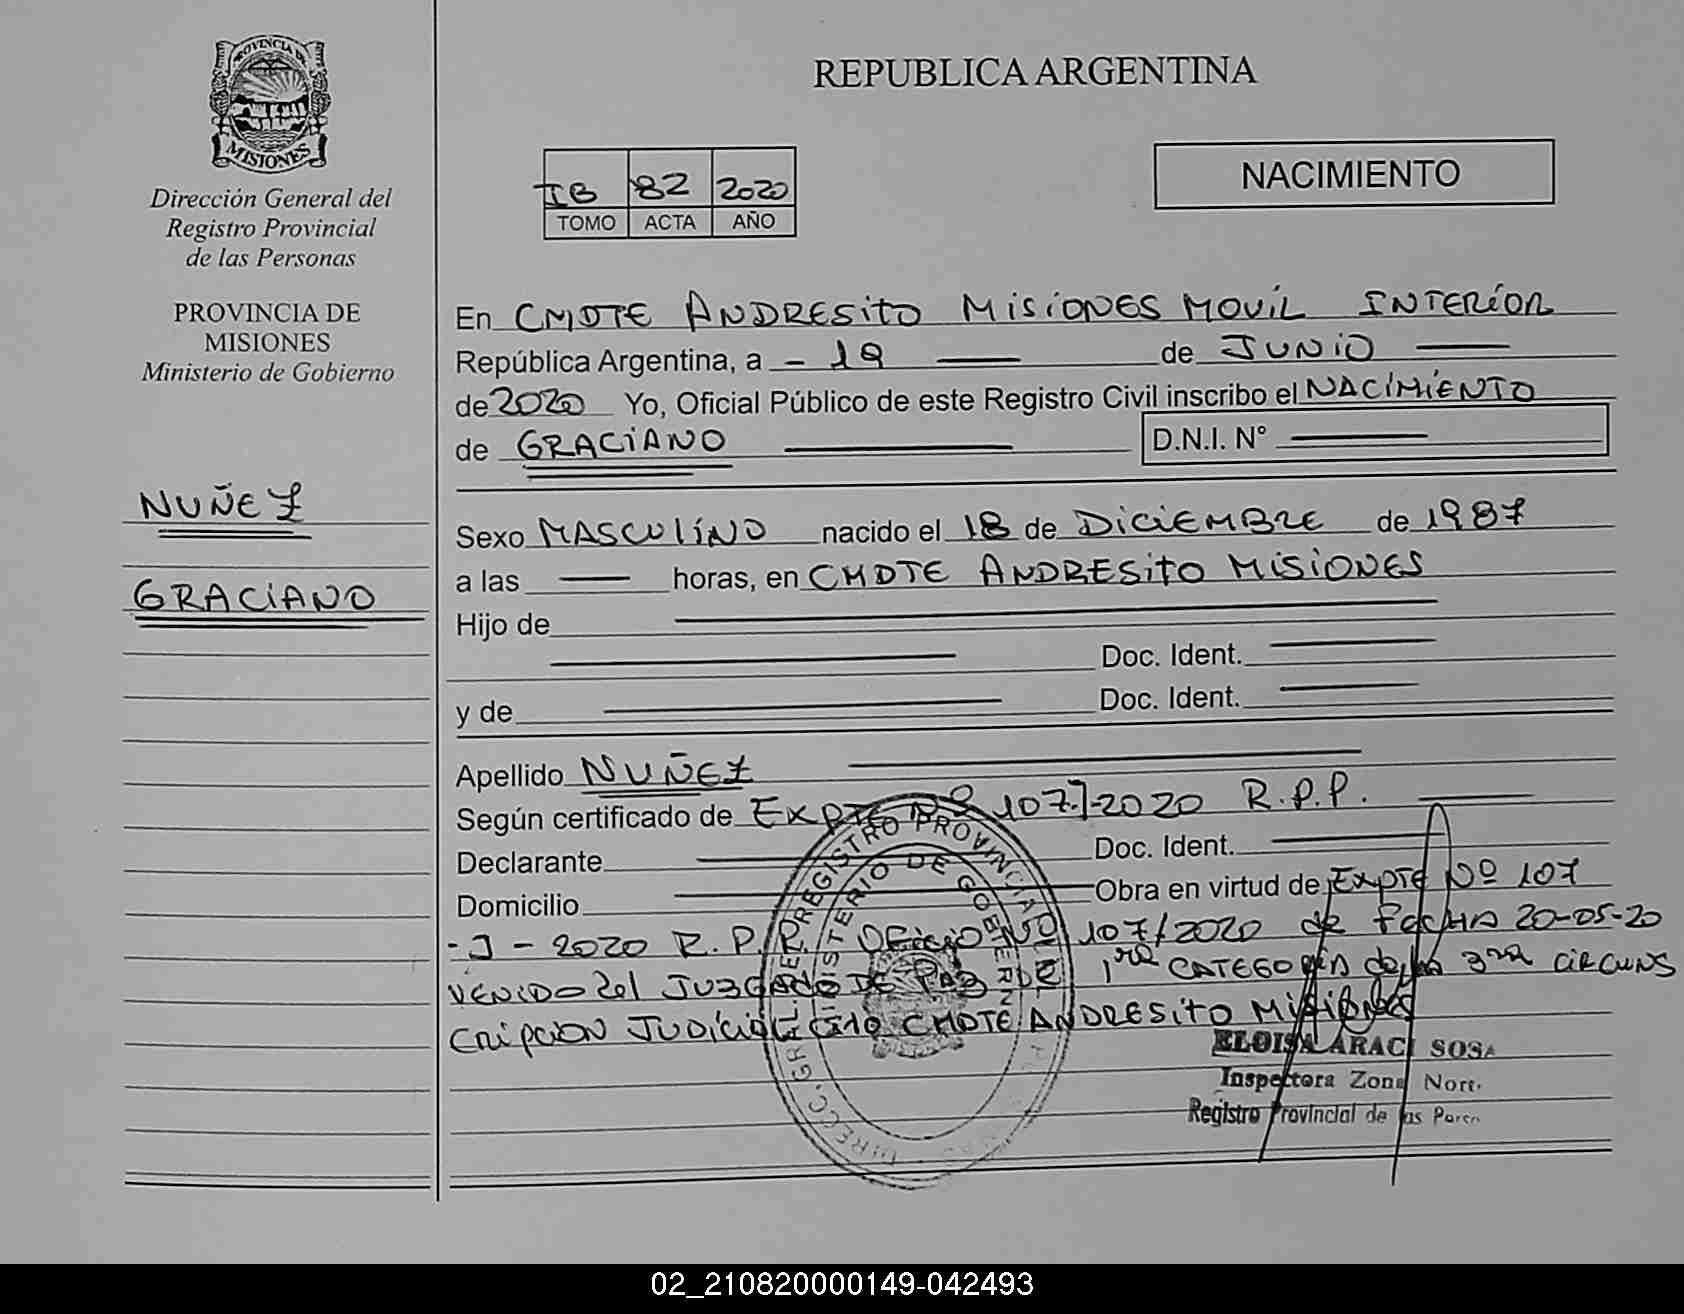 PROVINCIA DE
MISIONES
Dirección General del
Registro Provincial
de las Personas
PROVINCIA DE
MISIONES
Ministerio de Gobierno
NUÑEZ
GRACIANO
REPUBLICA ARGENTINA
IB 82 2020
TOMO ACTA AÑO
NACIMIENTO
En CMDTE ANDRESITO MISIONES MOVIL INTERIOR
República Argentina, a - 19 de JUNIO
de 2020 Yo, Oficial Público de este Registro Civil inscribo el NACIMIENTO
de GRACIANO D.N.I. N°
Sexo MASCULINO nacido el 18 de DICIEMBRE de 1987
a las horas, en CMDTE ANDRESITO MISIONES
Hijo de
Doc. Ident.
y de Doc. Ident.
Apellido NUÑEZ
Según certificado de EXPTE Nº 107-J-2020 R.P.P.
Declarante Doc. Ident.
Domicilio Obra en virtud de EXPTE Nº 107
- J - 2020 R.P.P. OFICIO Nº 107/2020 de FECHA 20-05-20
VENIDO del JUZGADO DE PAZ DE 1ra CATEGORIA de la 3ra CIRCUNS
CRIPCION JUDICIAL CMDTE ANDRESITO MISIONES
ELOISA ARACI SOSA
Inspectora Zona Nort.
Registro Provincial de las
DIRECC. GRAL. DEL REGISTRO PROVINCIAL
MINISTERIO DE GOBIERNO
02_210820000149-042493